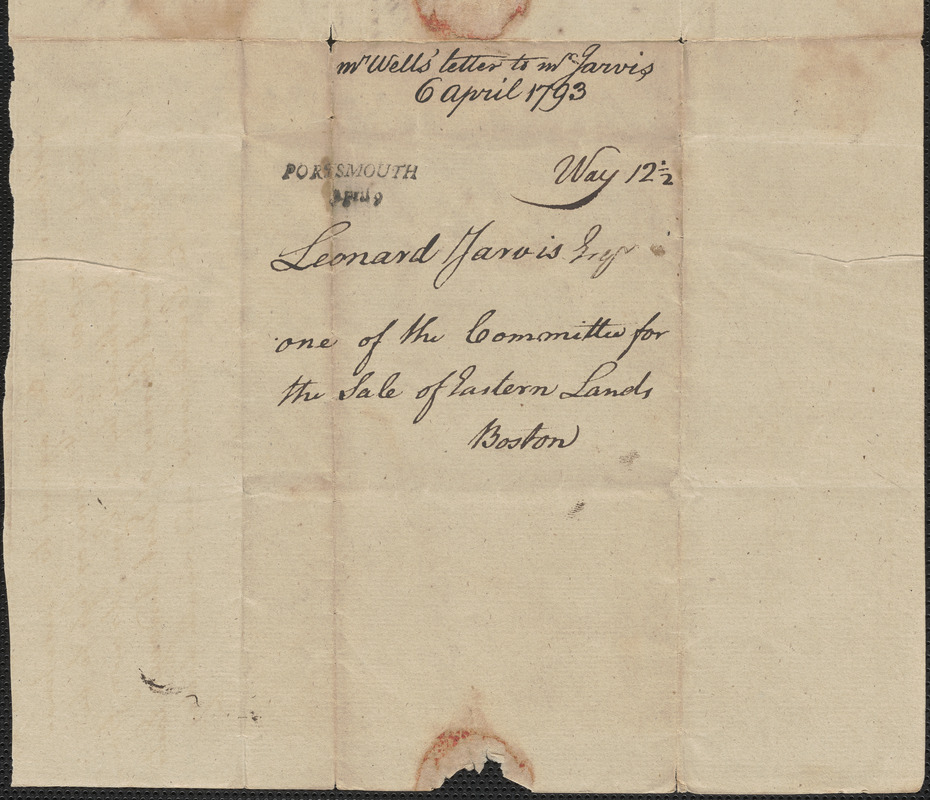 mr Wells' letter to mr Jarvis
6 April 1793
PORTSMOUTH
Way 12 1/2
April 9
Leonard Jarvis Esqr
one of the Committee for
the Sale of Eastern Lands
Boston